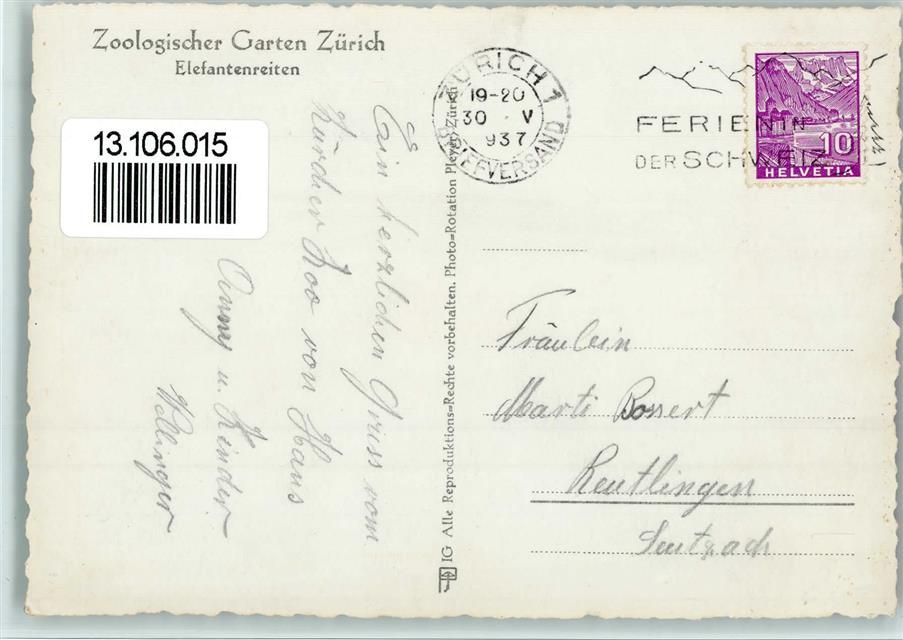 Zoologischer Garten Zürich
Elefantenreiten
13.106.015
Ein herzlichen Gruss vom
Zürcher Zoo von Hans
Anny u. Kinder
Wellinger
IG Alle Reproduktions=Rechte vorbehalten. Photo=Rotation Pleyer, Zürich
ZÜRICH 1
19-20
30 · V
937
BRIEFVERSAND
FERIEN IN
DER SCHWEIZ
10
HELVETIA
Fräulein
Marti Bossert
Reutlingen
Seuzach